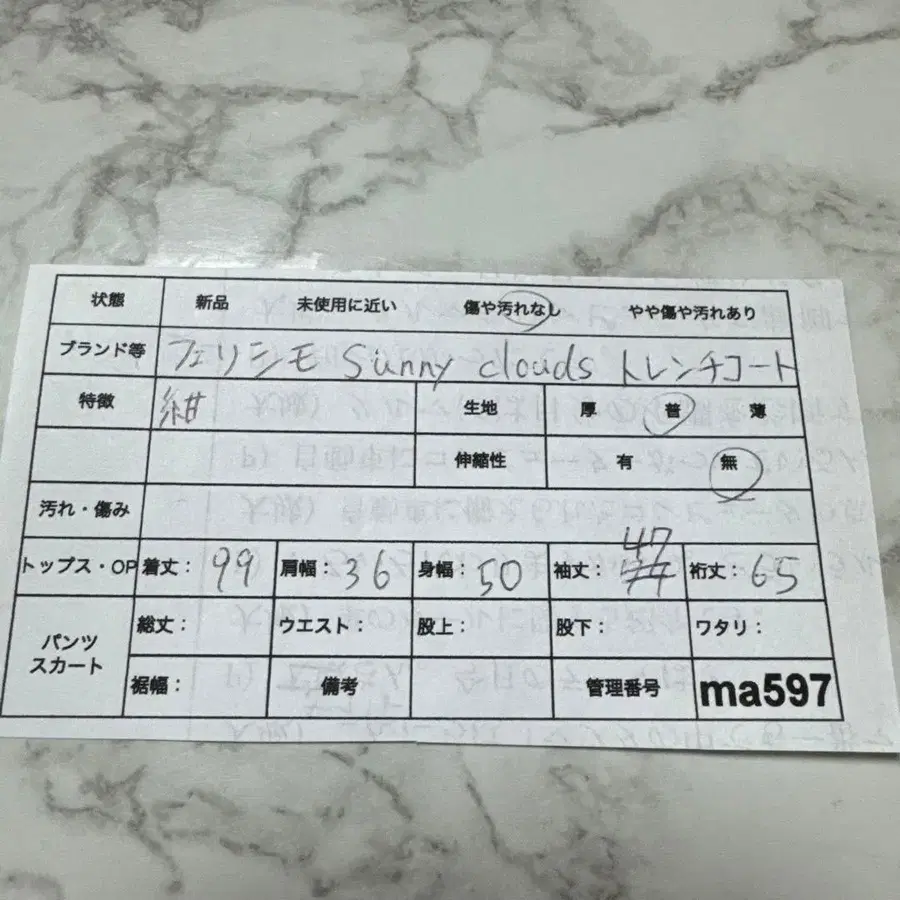 状態 新品 未使用に近い 傷や汚れなし やや傷や汚れあり
ブランド等 フェリシモ Sunny clouds トレンチコート
特徴 紺 生地 厚 普 薄
伸縮性 有 無
汚れ・傷み
47
トップス・OP 着丈：99 肩幅：36 身幅：50 袖丈： 裄丈：65
パンツ スカート 総丈： ウエスト： 股上： 股下： ワタリ：
裾幅： 備考 管理番号 ma597